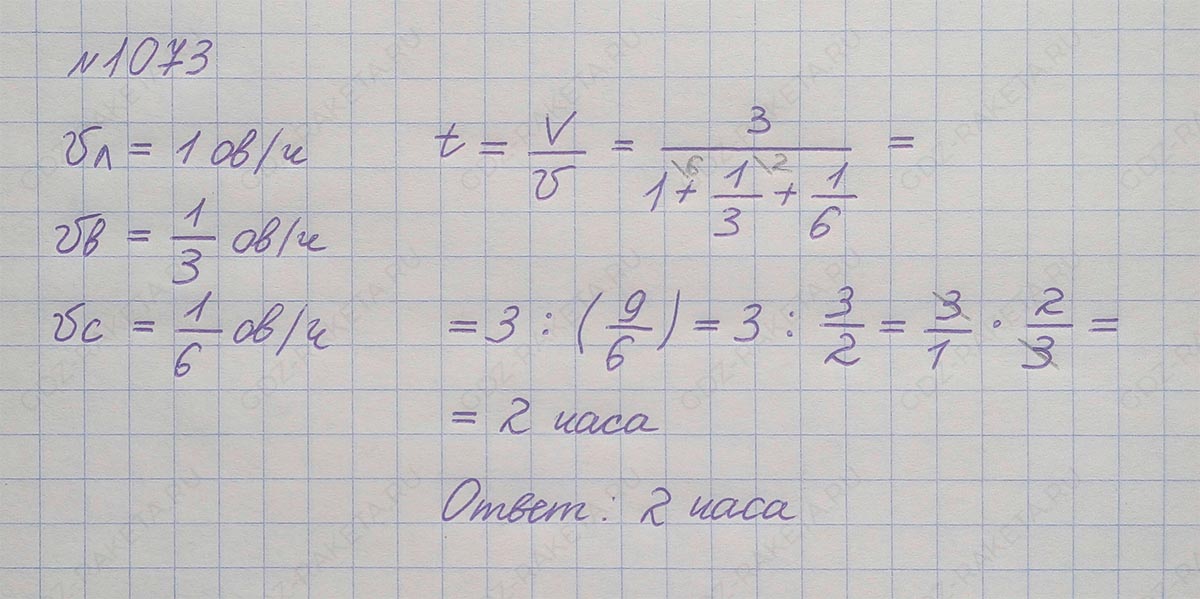 №1073
vл = 1 ов/ч
vв = 1/3 ов/ч
vс = 1/6 ов/ч
t = V/v = 3/(1\6 + 1/3\2 + 1/6) =
= 3 : (9/6) = 3 : 3/2 = 3/1 · 2/3 =
= 2 часа
Ответ: 2 часа
GDZ-RAKETA.RU